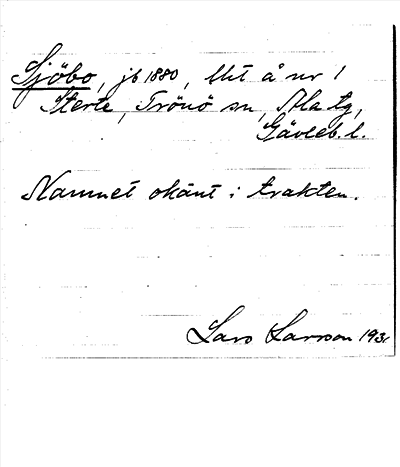 Sjöbo, jb 1880, Utt å nr 1
Sterte, Trönö sn, Ala tg,
Gävleb. l.
Namnet okänt i trakten.
Lars Larsson 1931